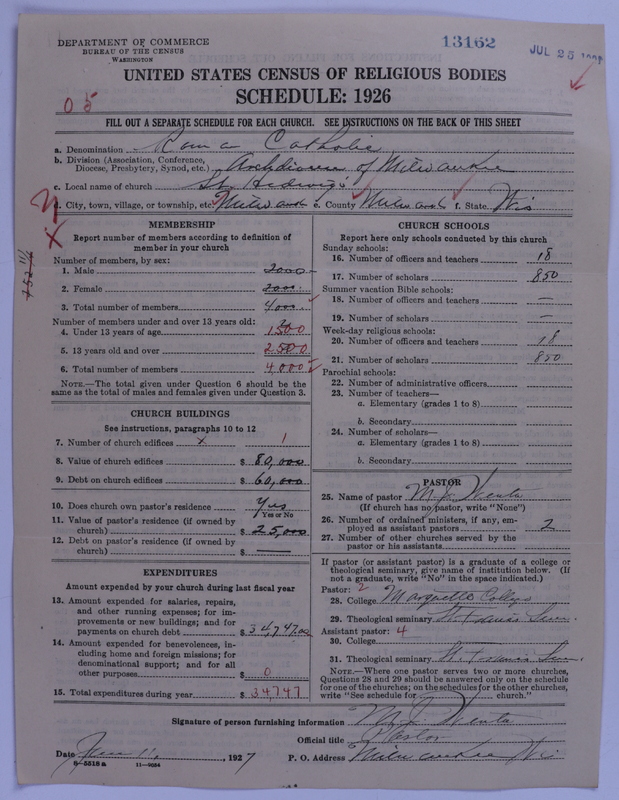 DEPARTMENT OF COMMERCE
BUREAU OF THE CENSUS
WASHINGTON
13162
JUL 25
UNITED STATES CENSUS OF RELIGIOUS BODIES
SCHEDULE: 1926
05
FILL OUT A SEPARATE SCHEDULE FOR EACH CHURCH. SEE INSTRUCTIONS ON THE BACK OF THIS SHEET
a. Denomination Roman Catholic
b. Division (Association, Conference, Diocese, Presbytery, Synod, etc.) Archdiocese of Milwaukee
c. Local name of church St. Hedwig's
d. City, town, village, or township, etc. Milwaukee e. County Milwaukee f. State Wis
MEMBERSHIP
Report number of members according to definition of member in your church
Number of members, by sex:
1. Male 2000
2. Female 2000
3. Total number of members 4000
Number of members under and over 13 years old:
4. Under 13 years of age 1500
5. 13 years old and over 2500
6. Total number of members 4000
NOTE.—The total given under Question 6 should be the same as the total of males and females given under Question 3.
CHURCH BUILDINGS
See instructions, paragraphs 10 to 12
7. Number of church edifices x 1
8. Value of church edifices $ 80,000
9. Debt on church edifices $ 60,000
10. Does church own pastor's residence Yes
Yes or No
11. Value of pastor's residence (if owned by church) $ 25,000
12. Debt on pastor's residence (if owned by church) $ —
EXPENDITURES
Amount expended by your church during last fiscal year
13. Amount expended for salaries, repairs, and other running expenses; for improvements or new buildings; and for payments on church debt $ 34,747.00
14. Amount expended for benevolences, including home and foreign missions; for denominational support; and for all other purposes $ 0
15. Total expenditures during year $ 34747
CHURCH SCHOOLS
Report here only schools conducted by this church
Sunday schools:
16. Number of officers and teachers 18
17. Number of scholars 850
Summer vacation Bible schools:
18. Number of officers and teachers —
19. Number of scholars —
Week-day religious schools:
20. Number of officers and teachers 18
21. Number of scholars 850
Parochial schools:
22. Number of administrative officers
23. Number of teachers—
a. Elementary (grades 1 to 8)
b. Secondary
24. Number of scholars—
a. Elementary (grades 1 to 8)
b. Secondary
PASTOR
25. Name of pastor M. J. Wenta
(If church has no pastor, write "None")
26. Number of ordained ministers, if any, employed as assistant pastors 2
27. Number of other churches served by the pastor or his assistants
If pastor (or assistant pastor) is a graduate of a college or theological seminary, give name of institution below. (If not a graduate, write "No" in the space indicated.)
Pastor: 2
28. College Marquette College
29. Theological seminary St. Francis Sem.
Assistant pastor: 4
30. College
31. Theological seminary St. Francis Sem.
NOTE.—Where one pastor serves two or more churches, Questions 28 and 29 should be answered only on the schedule for one of the churches; on the schedules for the other churches, write "See schedule for church."
Signature of person furnishing information M. J. Wenta
Official title Pastor
Date June 11, 1927 P. O. Address Milwaukee Wis
8-5518 a 11-9024